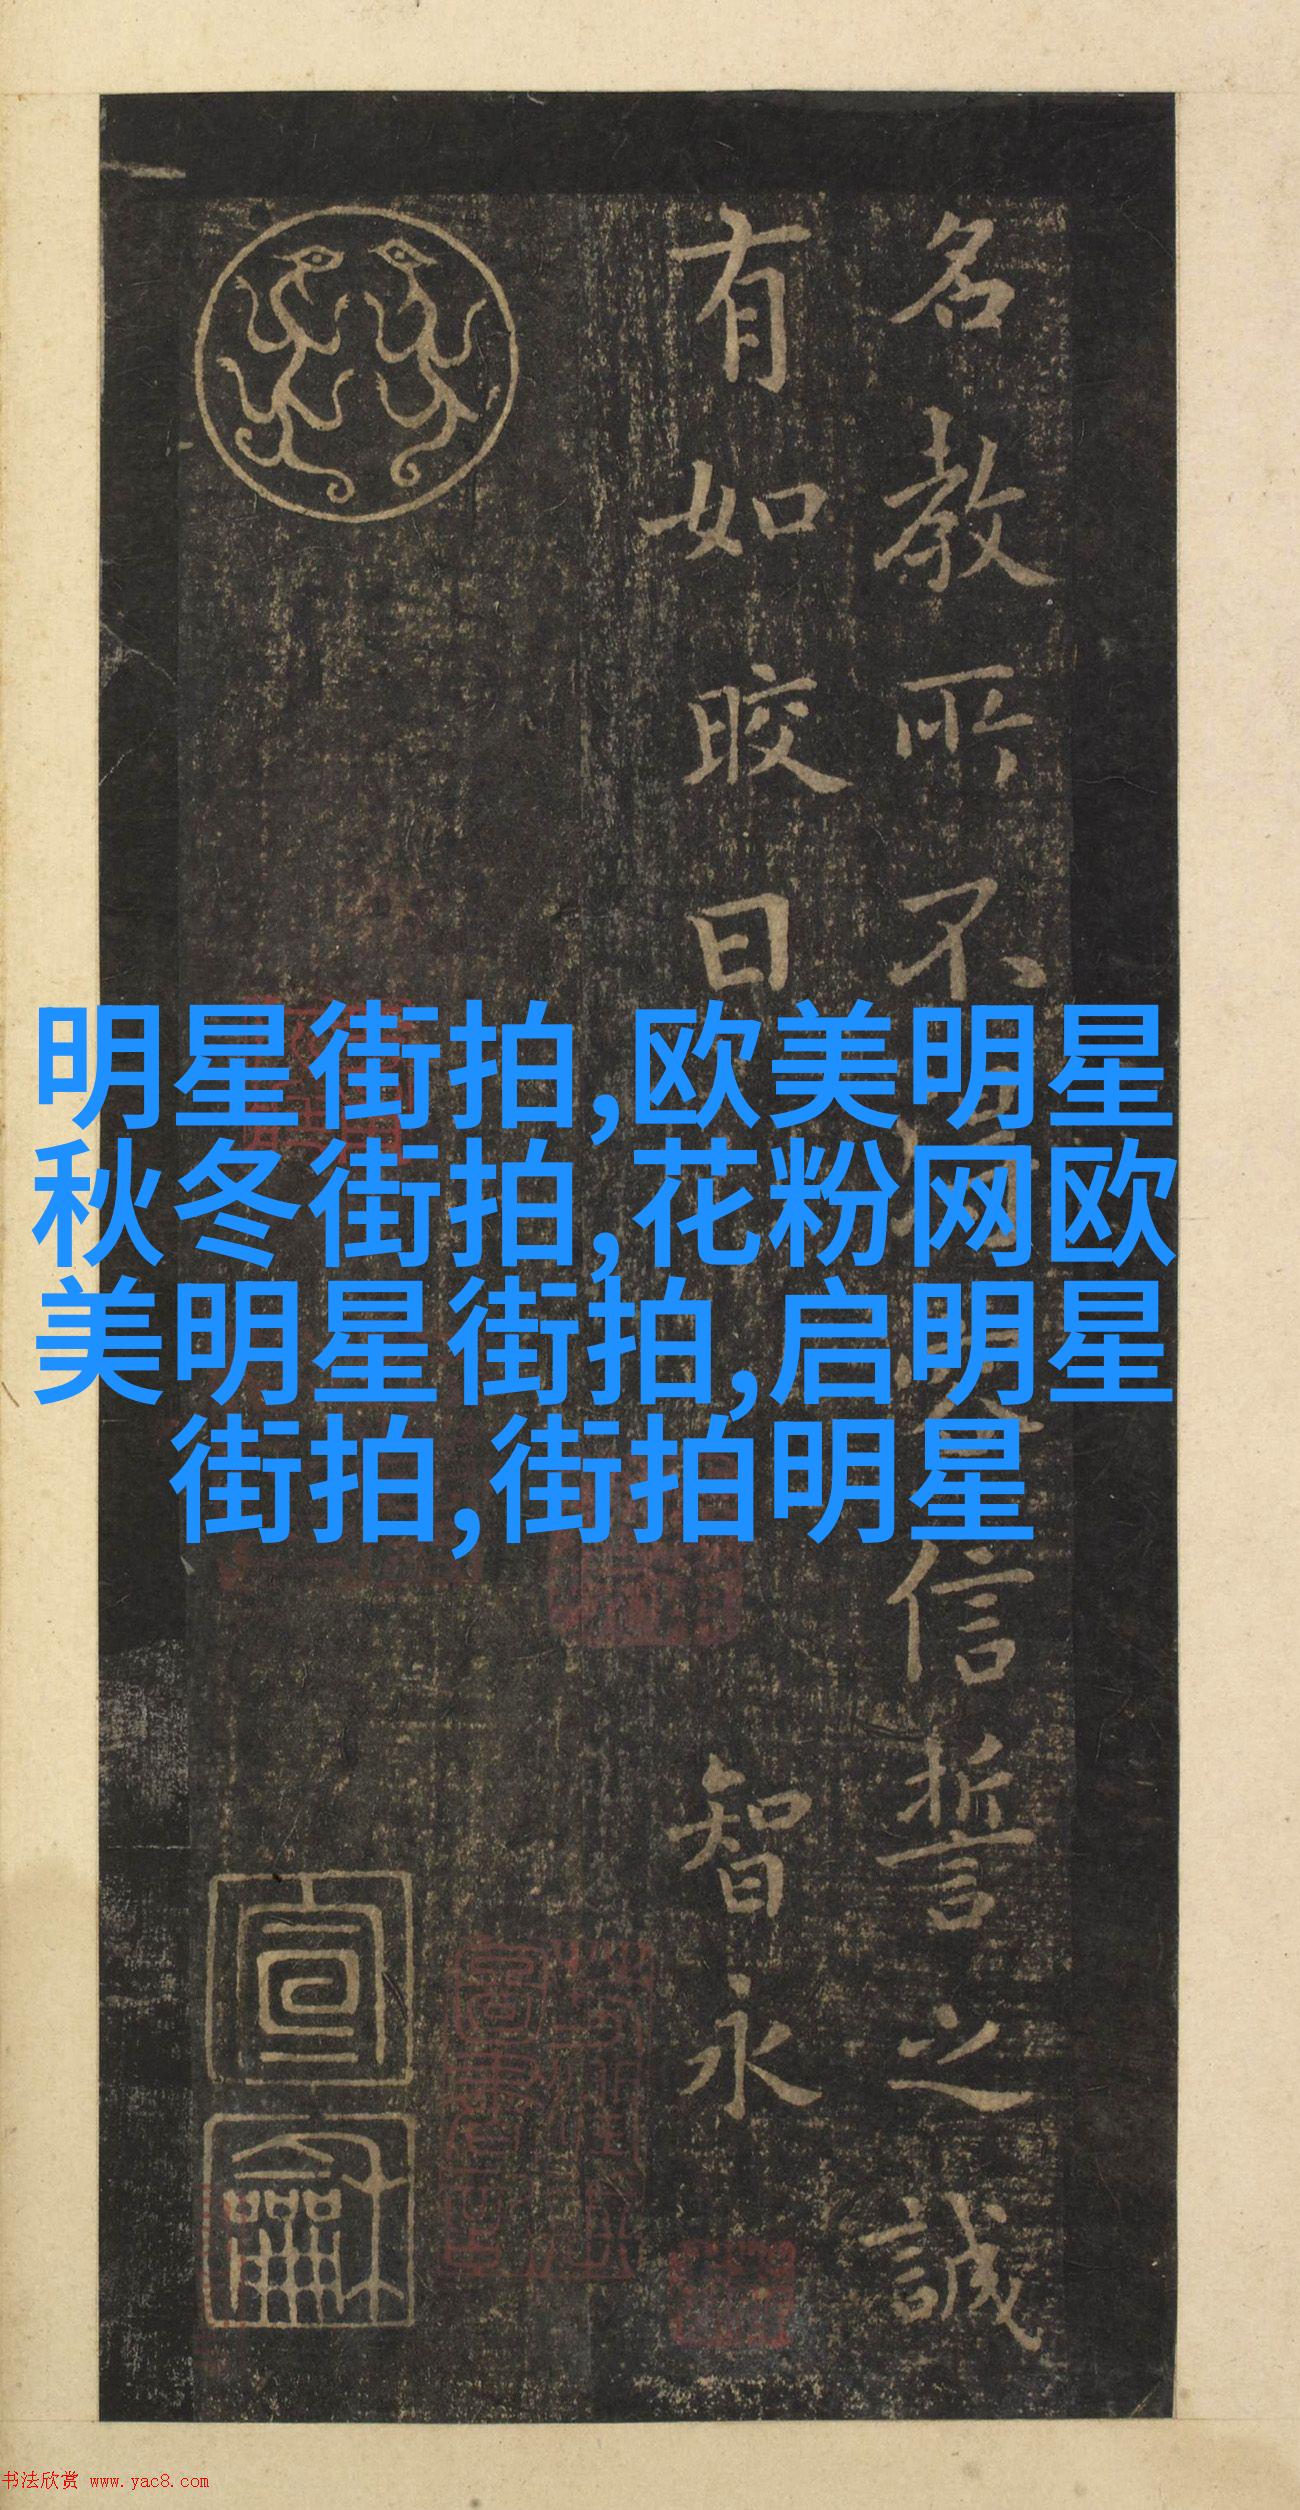 名教所不
信誓之誠
有如晈日
智永
明星街拍,欧美明星
秋冬街拍,花粉网欧
美明星街拍,启明星
街拍,街拍明星
宣
龢
书法欣赏 www.yac8.com